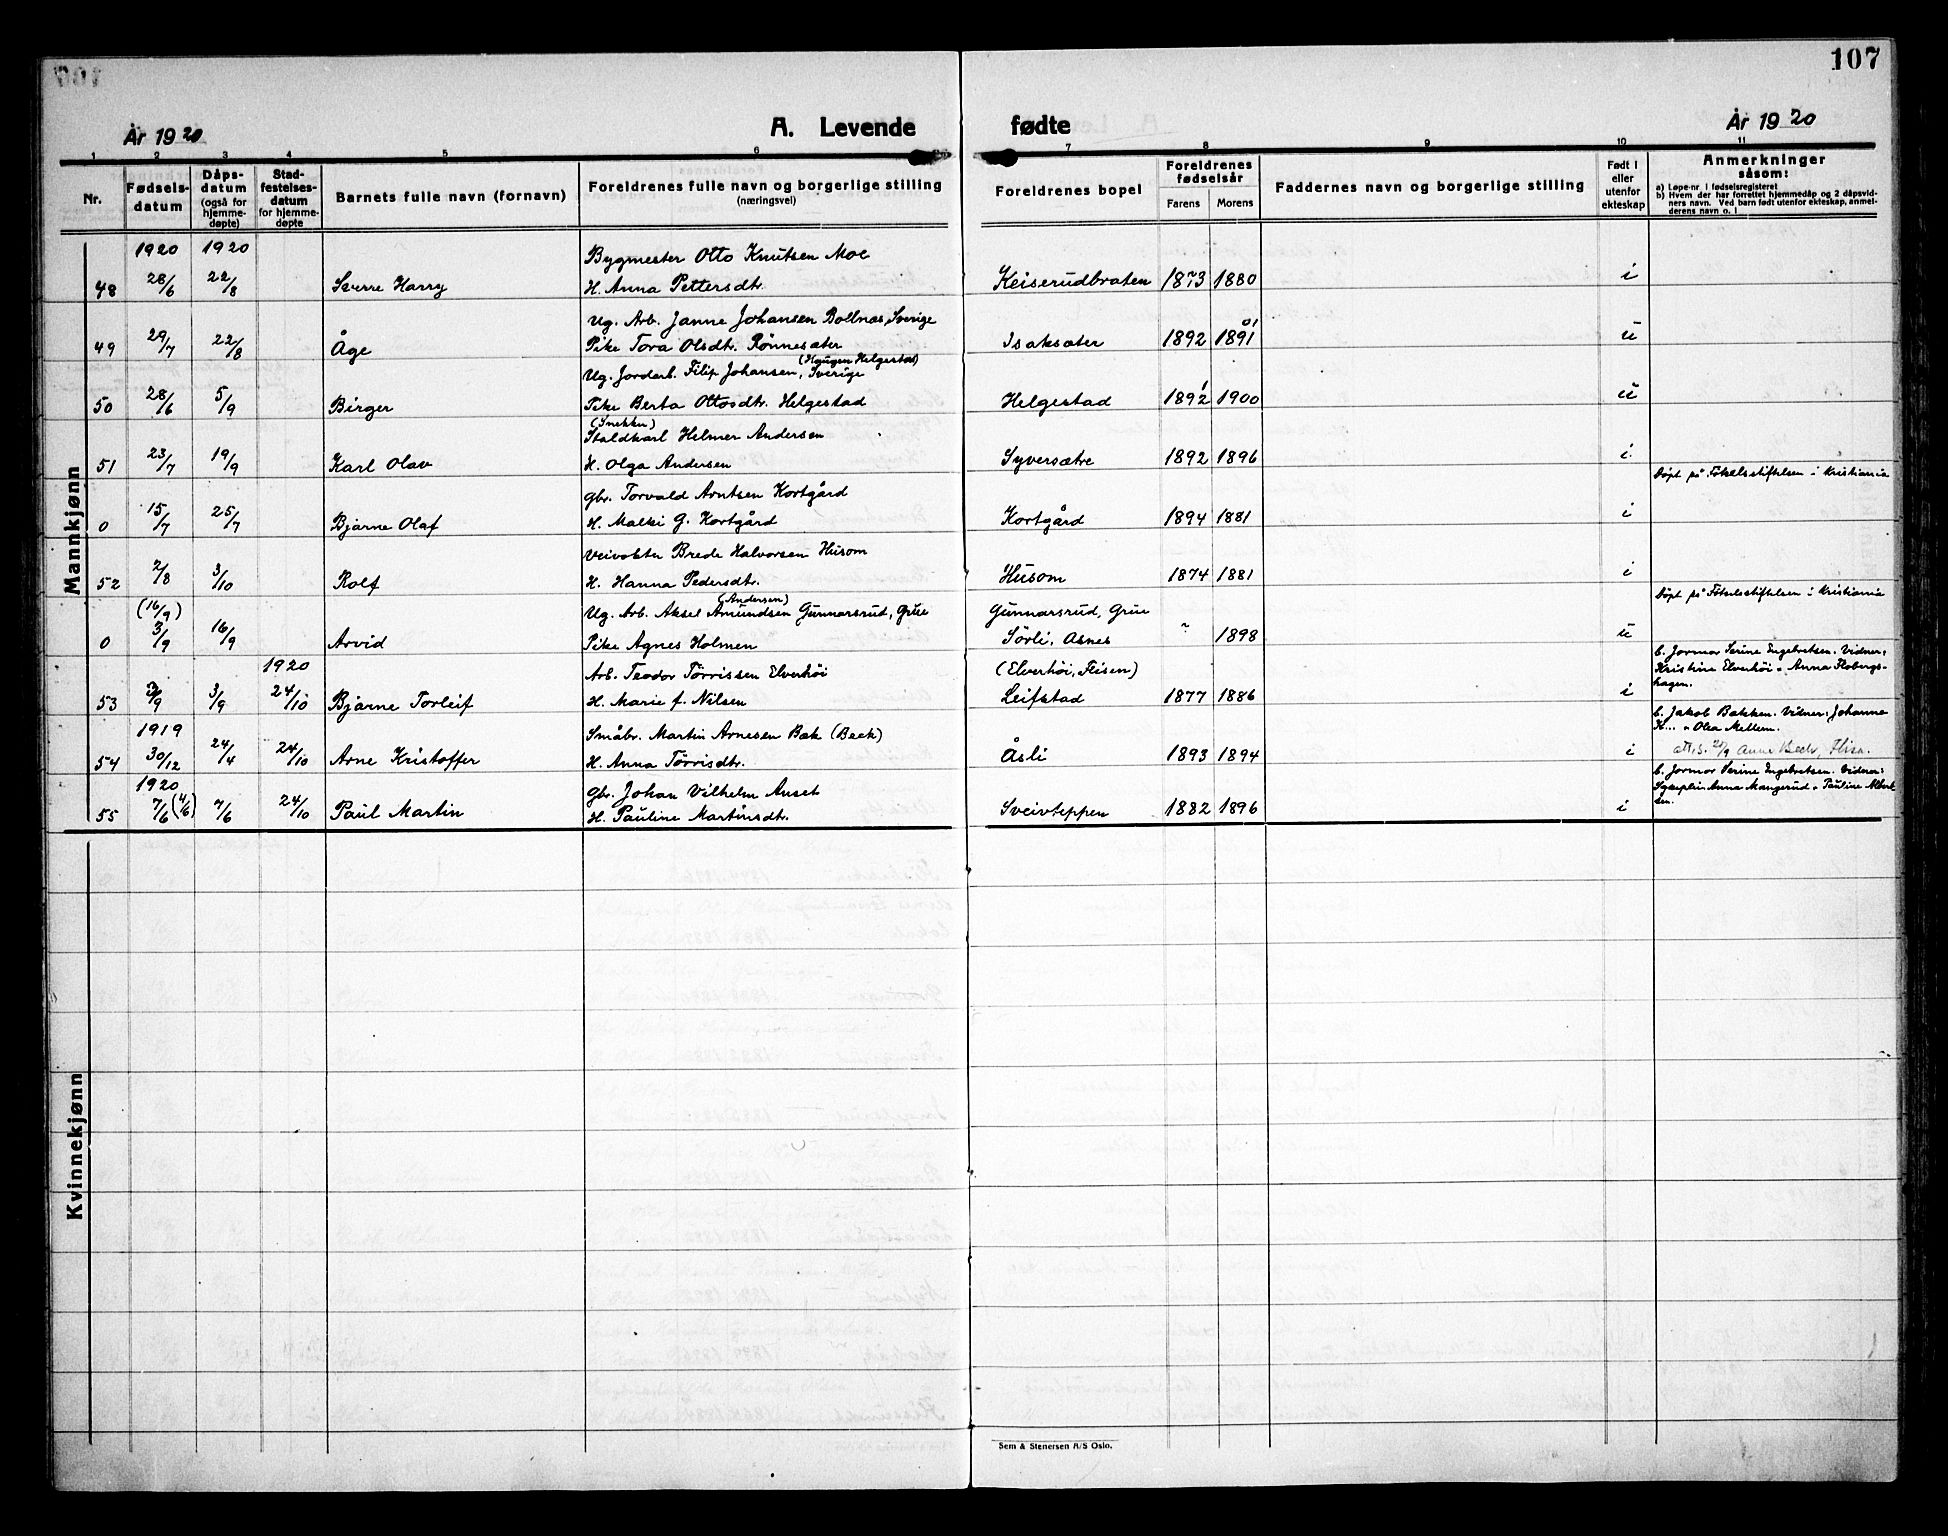 107
År 1920
A. Levende
fødte
År 1920
1 2 3 4 5 6 7 8 9 10 11
Nr.
Fødsels-
datum
Dåps-
datum
(også for
hjemme-
døpte)
Stad-
festelses-
datum
for hjemme-
døpte
Barnets fulle navn (fornavn)
Foreldrenes fulle navn og borgerlige stilling
(næringsvei)
Foreldrenes bopel
Foreldrenes
fødselsår
Farens
Morens
Faddernes navn og borgerlige stilling
Født i
eller
utenfor
ekteskap
Anmerkninger
såsom:
a) Løpe-nr. i fødselsregisteret
b) Hvem der har forrettet hjemmedåp og 2 dåpsvid-
ners navn. Ved barn født utenfor ekteskap, anmel-
derens navn o. l
Mannkjønn
1920 1920 Bygmester Otto Knutsen Moe
48 28/6 22/8 Sverre Harry H. Anna Pettersdtr. Keiserudbraten 1873 1880 i
Ug. Arb. Janne Johansen Bollnæs, Sverige
49 29/7 22/8 Åge Pike Tora Olsdtr. Rønnesæter Isaksæter 1892 1891 01 u
(Haugen Helgestad)
Ug. Jordarb. Filip Johansen, Sverige
50 28/6 5/9 Birger Pike Berta Ottosdtr. Helgestad Helgestad 1892 1 1900 u
(Snekker)
Staldkarl Helmer Andersen
51 23/7 19/9 Karl Olav H. Olga Andersen Syversætre 1892 1896 i
Døpt på Fødselsstiftelsen i Kristiania
gbr. Torvald Arntsen Kortgård
0 15/7 25/7 Bjarne Olaf H. Malki G. Kortgård Kortgård 1894 1881 i
Veivokter Brede Halvorsen Husom
52 2/8 3/10 Rolf H. Hanna Pedersdtr. Husom 1874 1881 i
Døpt på Fødselsstiftelsen i Kristiania
(Andersen)
(16/9) Ug. Arb. Aksel Amundsen Gunnarsrud, Grue Gunnarsrud, Grue
0 3/9 16/9 Arvid Pike Agnes Holmen Sörli, Åsnes ~ 1898 u
b. Jormor Serine Engebretsen. Vidner:
Kristine Elverhöi - Anna Flobergs-
hagen.
1920 Arb. Teodor Törrissen Elverhöi (Elverhöi, Flisen)
53 2/9 3/9 24/10 Bjarne Torleif H. Marie f. Nilsen Leifstad 1877 1886 i
b. Jakob Bakken. Vidner: Johanne
K... " Olea Mellem.
1919 Småbr. Martin Arnesen Bak (Beck)
54 30/12 24/4 24/10 Arne Kristoffer H. Anna Törrisdtr. Åsli 1893 1894 i
att. s. 2/9 Anne Beck, Flisa.
b. Jormor Serine Engebretsen. Vidner:
Sykeplrin Anna Mangerud " Pauline Albert
sen.
1920 gbr. Johan Vilhelm Anset
55 7/6 (4/6) 7/6 24/10 Paul Martin H. Pauline Martinsdtr. Sveivteppen 1882 1896 i
Kvinnekjønn
Sem & Stenersen A/S Oslo.